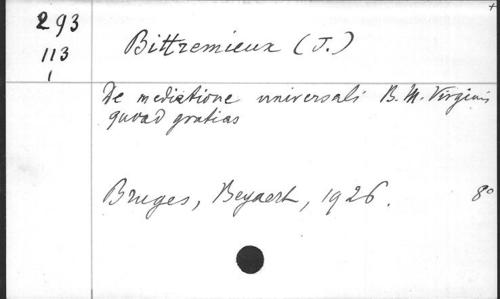 293
113
1
Bittremieux (J.)
De mediatione universali B. M. Virginis
quoad gratias
Bruges, Beyaert, 1926. 8°